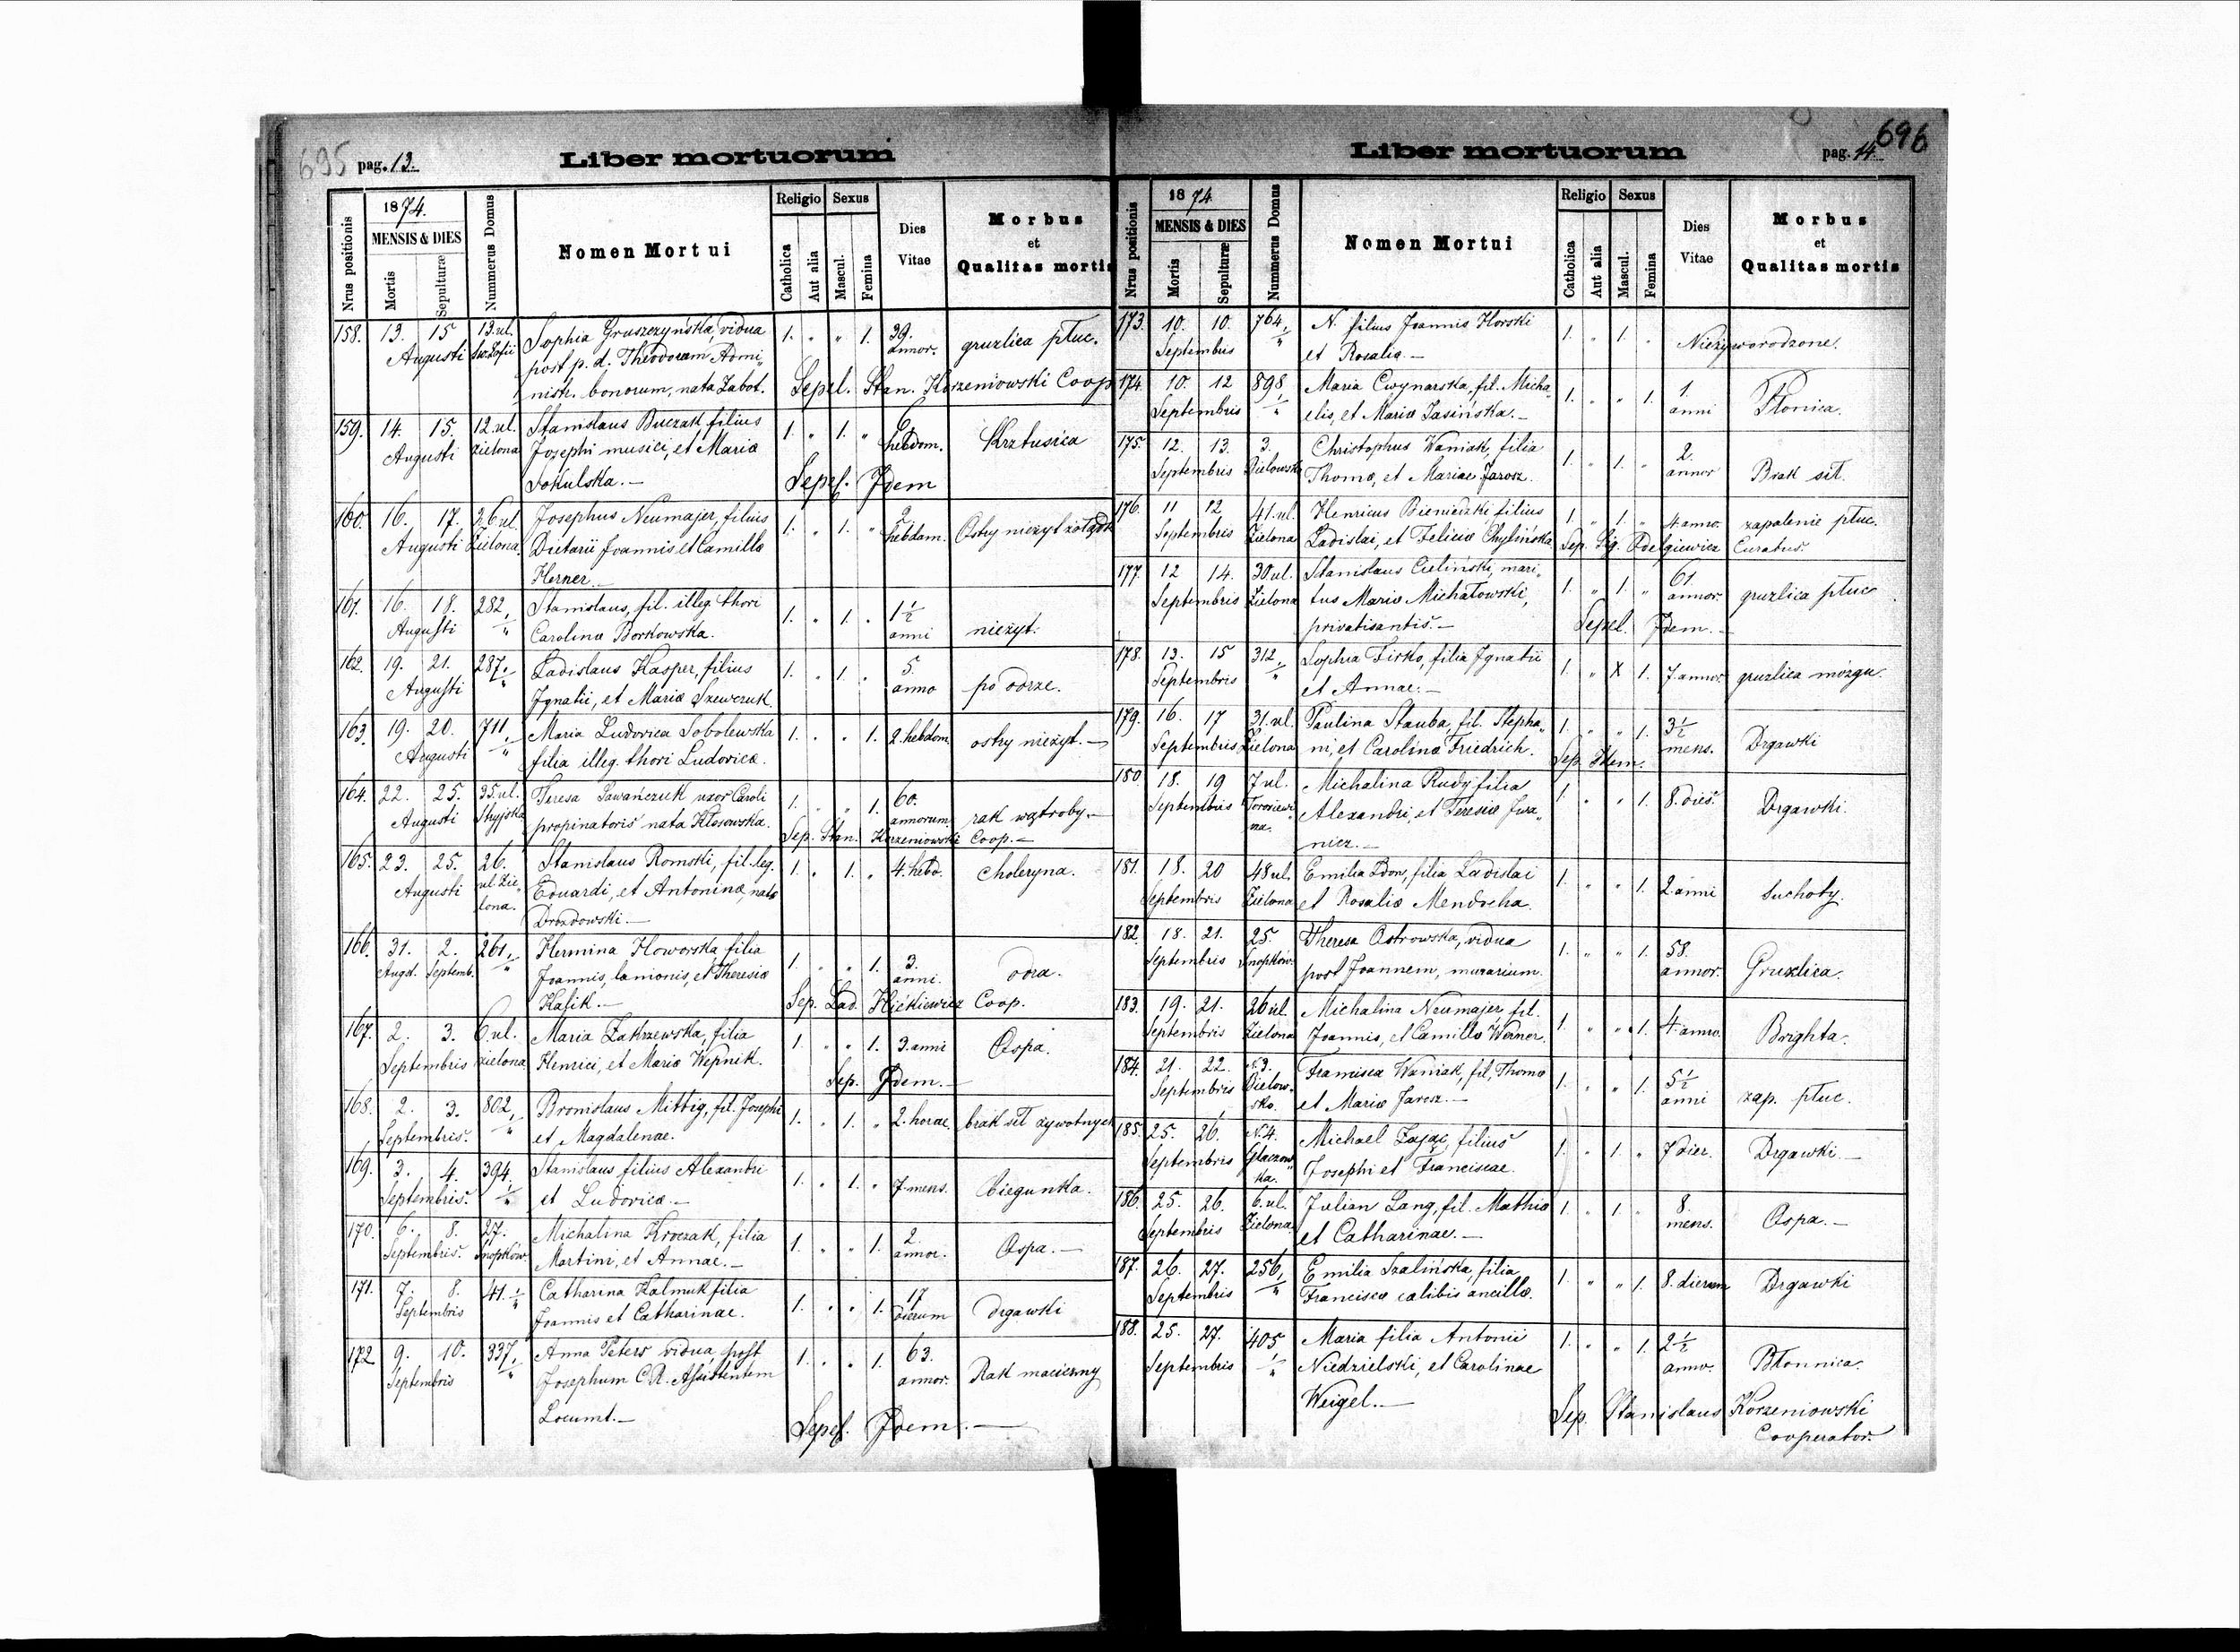 695 pag. 13. Liber mortuorum
Nrus positionis
1874.
MENSIS & DIES
Mortis
Sepulturæ
Nummerus Domus
Nomen Mortui
Religio
Catholica
Aut alia
Sexus
Mascul.
Femina
Dies
Vitae
Morbus
et
Qualitas mortis
158. 13. 15 13. ul. Sophia Gruszczyńska, vidua 1. " " 1. 39. gruzlica płuc.
Augusti św. Zofii post p. d. Theodorum Admi„ annor.
nistr. bonorum, nata Zabot. Sepel. Stan. Korzeniowski Coop
159. 14. 15. 12. ul. Stanislaus Buczak filius 1. " 1. " 6. Krztusica
Augusti Zielona Josephi musici, et Mariæ hebdom.
Sokulska.— Sepel. Idem
160. 16. 17. 26 ul. Josephus Neumajer, filius 1. " 1. " 2 Ostry nieżyt żołądk
Augusti Zielona. Dietarii Joannis et Camillæ hebdom.
Herner.—
161. 16. 18. 282 Stanislaus, fil. illeg. thori 1. " 1. " 1½ nieżyt.
Augusti Carolinæ Borkowska. anni
162. 19. 21. 287. Ladislaus Kasper, filius 1. " 1. " 5. po odrze.
Augusti Ignatii, et Mariæ Szewczuk. anno
163. 19. 20. 711 Maria Ludovica Sobolewska 1. " " 1. 2. hebdom. ostry nieżyt.—
Augusti filia illeg. thori Ludovicæ.
164. 22. 25. 35. ul. Teresa Sawańczuk uxor Caroli 1. " " 1. 60. rak wątroby.—
Augusti Stryjska propinatoris nata Kłosowska. annorum.
Sep. Stan. Korzeniowski Coop.—
165. 23. 25. 26. Stanislaus Romski, fil. leg. 1. " 1. " 4. hebd. choleryna.
Augusti ul. Zie„ Eduardi, et Antoninæ, nata
lona. Drozdowski.—
166. 31. 2. 261. Hermina Howorska, filia 1. " " 1. 3. odra.
Augst. Septemb. Joannis, lanionis, et Theresiæ anni.
Kafik.— Sep. Lad. Hickiewicz Coop.
167. 2. 3. 6. ul. Maria Zakrzewska, filia 1. " " 1. 3. anni Ospa.
Septembris Zielona Henrici, et Mariæ Wepnik.
Sep. Idem.—
168. 2. 3. 802. Bronislaus Mittig, fil. Josephi 1. " 1. " 2. horae. brak sił żywotnych
Septembris. et Magdalenae.
169. 3. 4. 394. Stanislaus filius Alexandri 1. " 1. " 7. mens. Biegunka.
Septembris. et Ludovicæ.—
170. 6. 8. 27. Michalina Kroczak, filia 1. " " 1. 2 Ospa.—
Septembris. Snopków. Martini, et Annae.— annor.
171. 7. 8. 41. Catharina Kalmuk filia 1. " " 1. 17 drgawki
Septembris Joannis et Catharinae. dierum
172 9. 10. 337. Anna Peters vidua post 1. " " 1. 63. Rak maciczny
Septembris Josephum C.R. Assistentem annor.
Locumt.— Sepel. Idem.—
Liber mortuorum pag. 14. 696
Nrus positionis
1874
MENSIS & DIES
Mortis
Sepulturæ
Nummerus Domus
Nomen Mortui
Religio
Catholica
Aut alia
Sexus
Mascul.
Femina
Dies
Vitae
Morbus
et
Qualitas mortis
173. 10. 10. 764. N. filius Joannis Horski 1. " 1. " Nieżyworodzone.
Septembris et Rosalia.—
174. 10. 12 898 Maria Cwynarska, fil. Micha„ 1. " " 1. 1. Płonica.
Septembris elis, et Mariæ Jasińska.— anni
175. 12. 13. 3. Christophus Waniak, filia 1. " 1. " 2. Brak sił.
Septembris Bielowsk Thomæ, et Mariae Jarosz. annor
176. 11 12 41. ul. Henricus Bieniedzki filius 1. " 1. " 4. anno. zapalenie płuc.
Septembris Zielona Ladislai, et Feliciæ Chylińska Sep. Sig. Odelgiewicz Curatus.
177. 12 14. 30 ul. Stanislaus Cieliński, mari„ 1. " 1. " 61. gruzlica płuc
Septembris Zielona tus Mariæ Michałowski, annor.
privatisantis.— Sepel. Idem.—
178. 13. 15 312. Sophia Firko, filia Ignatii 1. " X 1. 7 annor. gruzlica mózgu.
Septembris et Annae.—
179. 16. 17 31. ul. Paulina Stauba, fil. Stepha„ 1. " " 1. 3½ Drgawki
Septembris Zielona ni, et Carolinæ Friedrich. Sep. Idem. mens.
180 18. 19 7 ul. Michalina Rudy filia 1. " " 1. 8. dies. Drgawki.
Septembris Torosiewi„ Alexandri, et Teresiæ Jura„
na. nicz.—
181. 18. 20 48 ul. Emilia Don, filia Ladislai 1. " " 1. 2. anni Suchoty.
Septembris Zielona et Rosaliæ Mendocha.
182. 18. 21. 25. Theresa Ostrowska, vidua 1. " " 1. 58. Gruzlica.
Septembris Snopków. post Joannem, murarium. annor.
183. 19. 21. 26 ul. Michalina Neumajer, fil. 1. " " 1. 4. anno. Brighta.
Septembris Zielona Joannis, et Camillæ Werner.
184. 21. 22. N. 3. Francisca Waniak, fil. Thomæ 1. " " 1. 5½ zap. płuc.
Septembris Bielow„ et Mariæ Jarosz.— anni
sko.
185. 25. 26. N. 4. Michael Zając, filius 1. " 1. " 7 dier. Drgawki.—
Septembris Głaczow„ Josephi et Franciscae.
ka.
186. 25. 26. 6. ul. Julian Lang, fil. Mathiæ 1. " 1. " 8. Ospa.—
Septembris Zielona et Catharinae.— mens.
187. 26. 27. 256. Emilia Szalińska, filia 1. " " 1. 8. dierum Drgawki
Septembris Franciscæ calibis ancillæ.
188. 25. 27. 405 Maria filia Antonii 1. " " 1. 2½ Błonnica.
Septembris Niedzielski, et Carolinae anno.
Weigel.— Sep. Stanislaus Korzeniowski
Cooperator.